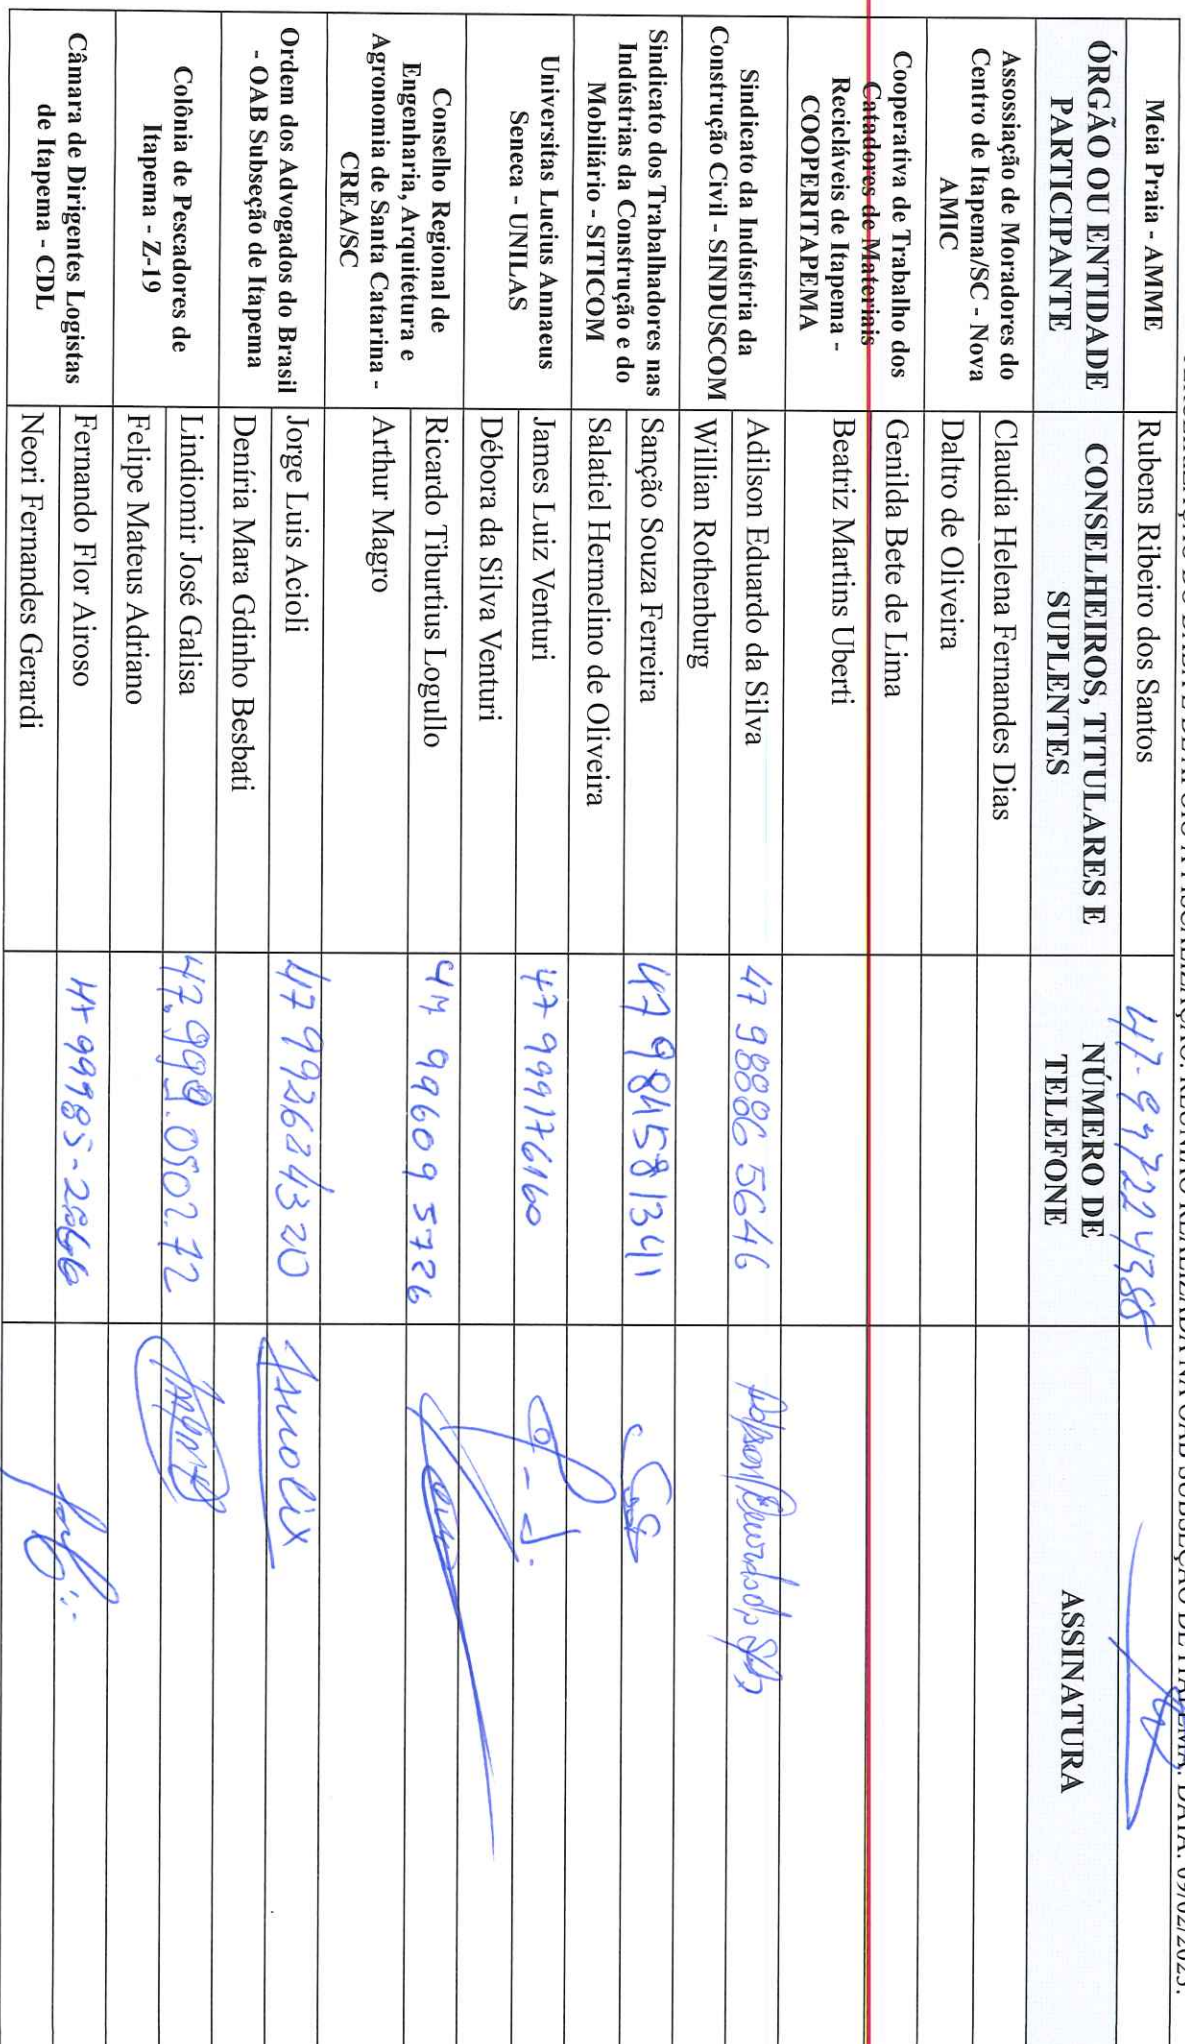 REUNIÃO REALIZADA NA OAB SUBSEÇÃO DE ITAPEMA. DATA: 09/02/2023.
Meia Praia - AMME
Rubens Ribeiro dos Santos
ÓRGÃO OU ENTIDADE
PARTICIPANTE
CONSELHEIROS, TITULARES E
SUPLENTES
NÚMERO DE
TELEFONE
ASSINATURA
Assossiação de Moradores do
Centro de Itapema/SC - Nova
AMIC
Claudia Helena Fernandes Dias
Daltro de Oliveira
Cooperativa de Trabalho dos
Catadores de Materiais
Recicláveis de Itapema -
COOPERITAPEMA
Genilda Bete de Lima
Beatriz Martins Uberti
Sindicato da Indústria da
Construção Civil - SINDUSCOM
Adilson Eduardo da Silva
47 98886 5646
Willian Rothenburg
Sindicato dos Trabalhadores nas
Indústrias da Construção e do
Mobiliário - SITICOM
Sanção Souza Ferreira
47 984581341
Salatiel Hermelino de Oliveira
Universitas Lucius Annaeus
Seneca - UNILAS
James Luiz Venturi
47 999176160
Débora da Silva Venturi
Conselho Regional de
Engenharia, Arquitetura e
Agronomia de Santa Catarina -
CREA/SC
Ricardo Tiburtius Logullo
47 99609 5726
Arthur Magro
Ordem dos Advogados do Brasil
- OAB Subseção de Itapema
Jorge Luis Acioli
47 992624320
Deníria Mara Gdinho Besbati
Colônia de Pescadores de
Itapema - Z-19
Lindiomir José Galisa
47.999.0502.72
Felipe Mateus Adriano
Câmara de Dirigentes Logistas
de Itapema - CDL
Fernando Flor Airoso
Neori Fernandes Gerardi